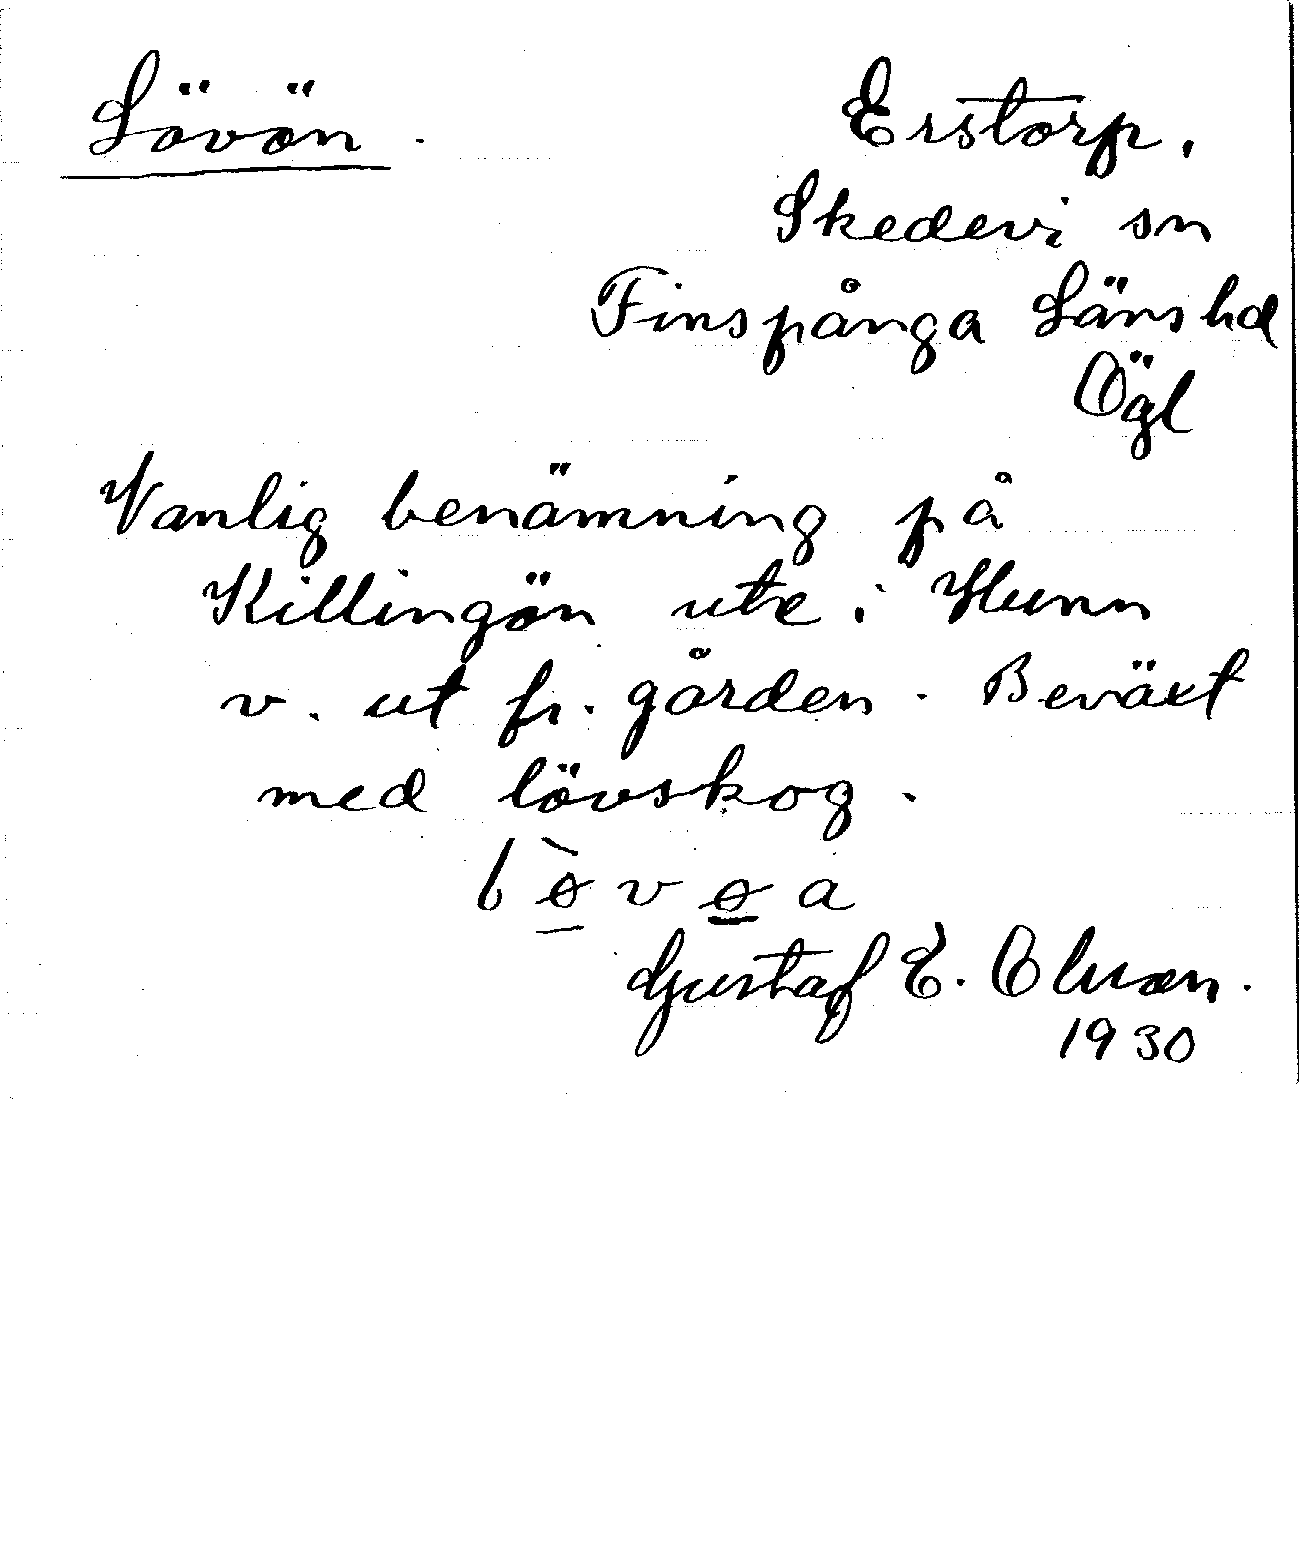 Lövön.
Erstorp.
Skedevi sn
Finspånga Läns hd
Ögl
Vanlig benämning på
Killingön ute i Hunn
v. ut fr. gården. Beväxt
med lövskog.
Gustaf E. Olsson.
1930